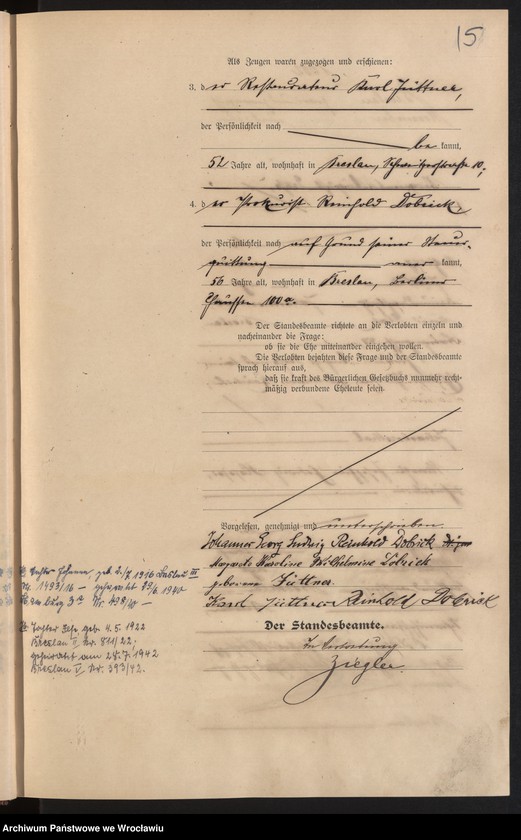 15
Als Zeugen waren zugezogen und erschienen:
3. der Restaurateur Karl Jüttner,
der Persönlichkeit nach
be kannt,
52 Jahre alt, wohnhaft in Breslau, Schweitzerstraße 10;
4. der Prokurist Reinhold Dobrick,
der Persönlichkeit nach auf Grund seiner Steuer-
quittung aner kannt,
56 Jahre alt, wohnhaft in Breslau, Berliner
Chaussee 100a.
Der Standesbeamte richtete an die Verlobten einzeln und
nacheinander die Frage:
ob sie die Ehe miteinander eingehen wollen.
Die Verlobten bejahten diese Frage und der Standesbeamte
sprach hierauf aus,
daß sie kraft des Bürgerlichen Gesetzbuchs nunmehr recht-
mäßig verbundene Eheleute seien.
Vorgelesen, genehmigt und unterschrieben.
Johannes Georg Ludwig Reinhold Dobrick
Margarete Karoline Wilhelmine Dobrick
geborene Jüttner
Karl Jüttner Reinhold Dobrick
Der Standesbeamte.
In Vertretung
Ziegler
Tochter geb. 2./7. 1916 Breslau III
Nr. 1493/16 — geheiratet 29/6. 1940
Nr. 498/40 —
Tochter geb. 4.5.1922
Breslau II Nr. 811/22.
geheiratet am 28.7.1942
Breslau V Nr. 393/42.
Archiwum Państwowe we Wrocławiu